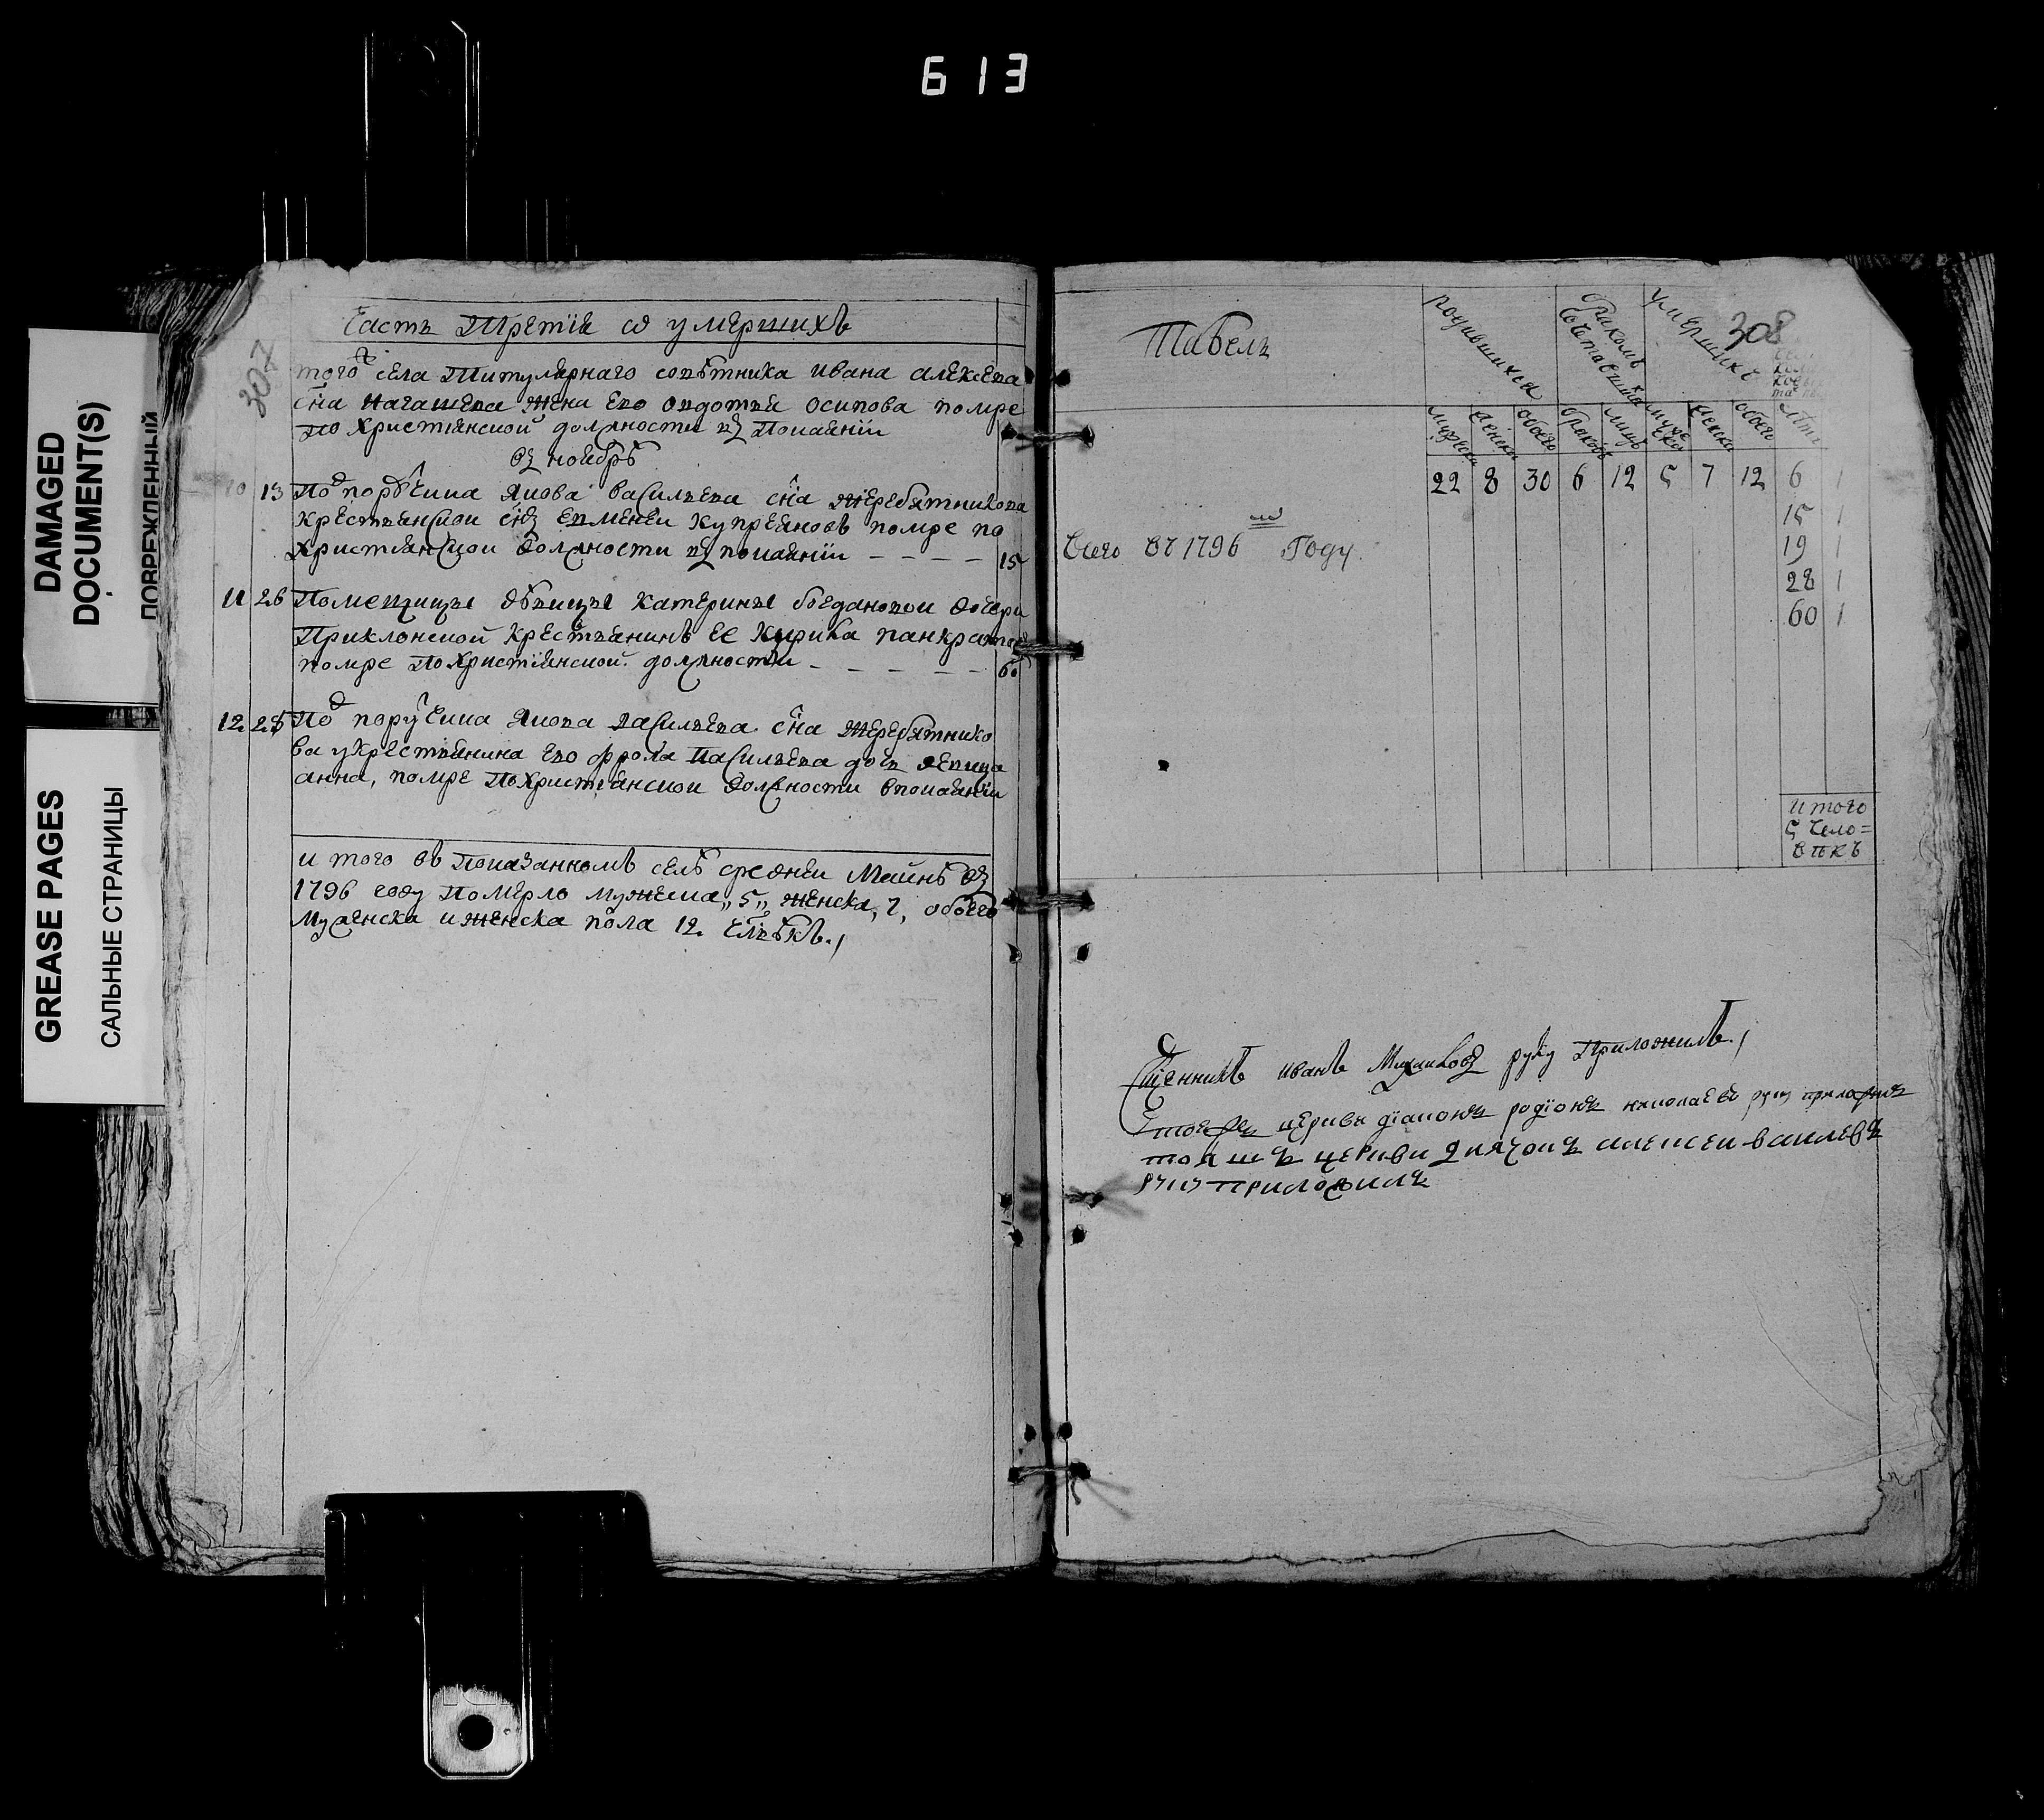 613
DAMAGED
DOCUMENT(S)
ПОВРЕЖДЕННЫЙ
GREASE PAGES
САЛЬНЫЕ СТРАНИЦЫ
307
Часть Третїя ѡ умершихъ
тогоже села Титулярнаго совѣтника Ивана Алексѣева
сна жена его Овдотья Осипова помре
по христїянской должности въ покаянїи
въ ноябрѣ
10 13 Подпорутчика Якова Васильева сна Жеребятникова
крестьянской снъ Еремѣй Купреяновъ помре по
христїянской должности въ покаянїи — — — — 15
11 26 Помещицы дѣвицы Катерины Богдановой дочери
Приклонской крестьянинъ ее Кирика Панкратов
помре по христїянской должности — — — — — 60
12 28 Подпоручика Якова Васильева сна Жеребятнико
ва у крестьянина его Фрола Васильева дочь девица
Анна, помре по христїянской должности в покаянїи
итого въ показанномъ селѣ средней Майнѣ въ
1796 году Померло мужеска „5„ женска, 7, обоего
мужеска и женска пола 12. члвѣкъ./
308
Табель
родившихся
бракомъ сочетавшихся
умершихъ
мужеска женска обоего браковъ лицъ мужеска женска обоего лѣта
22 8 30 6 12 5 7 12 6 1
15 1
Всего въ 1796м Году
19 1
28 1
60 1
итого
5 чело=
вѣкъ
Сщенникъ Иванъ Михаиловъ руку Приложилъ./
Тоежъ церкви дїаконъ родїонъ николаевъ руку приложилъ
тояжъ церкви дьячокъ алексеи василевъ
руку приложилъ